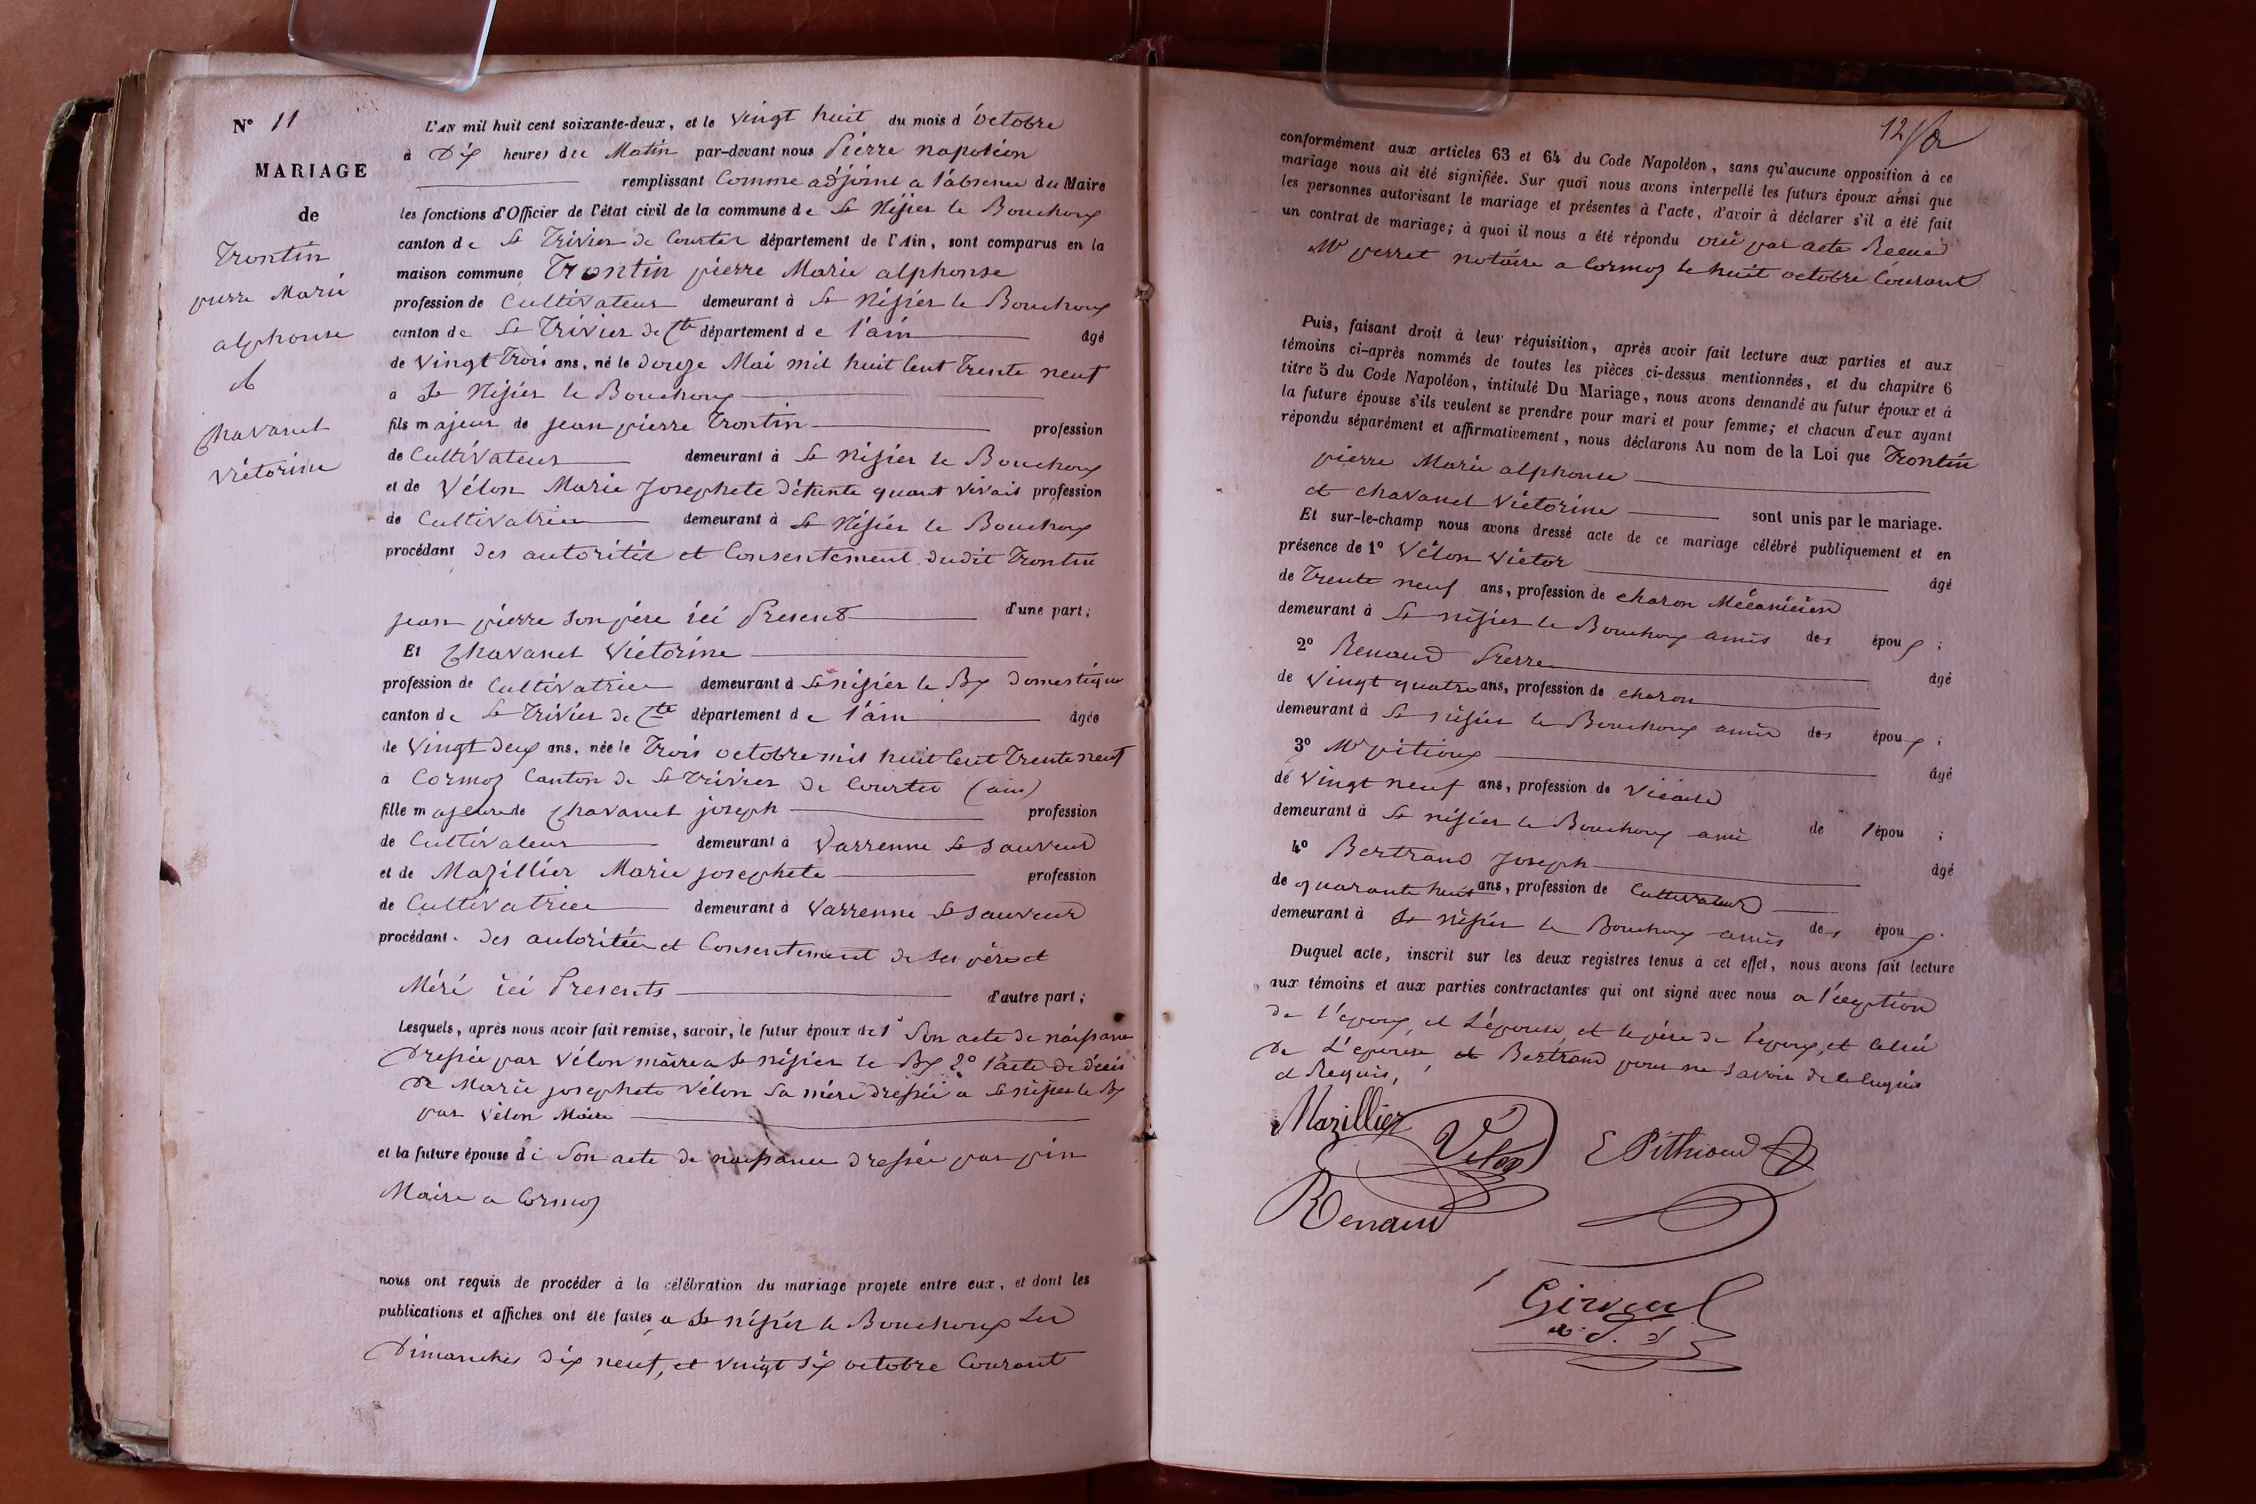 N° 11
MARIAGE
de
Trontin
pierre Marie
alphonse
et
Chavanet
Victorine
L'AN mil huit cent soixante-deux, et le vingt huit du mois d'octobre
à Dix heures du Matin par-devant nous Pierre napoléon
remplissant Comme adjoint a l'absence du Maire
les fonctions d'Officier de l'état civil de la commune de St Nizier le Bouchoux
canton de St Trivier de Courtes département de l'Ain, sont comparus en la
maison commune Trontin pierre Marie alphonse
profession de Cultivateur demeurant à St Nizier le Bouchoux
canton de St Trivier de Cte département de l'ain âgé
de vingt Trois ans, né le douze Mai mil huit Cent Trente neuf
à St Nizier le Bouchoux
fils majeur de jean pierre Trontin profession
de Cultivateur demeurant à St Nizier le Bouchoux
et de Vélon Marie Josephete défunte quant vivait profession
de Cultivatrice demeurant à St Nizier le Bouchoux
procédant des autoritée et Consentement dudit Trontin
jean pierre son père ici Present d'une part;
Et Chavanet Victorine
profession de Cultivatrice demeurant à St nizier le Bx domestique
canton de St Trivier de Cte département de l'ain âgée
de Vingt deux ans, née le Trois octobre mil huit Cent Trente neuf
à Cormoz Canton de St Trivier de Courtes (ain)
fille majeure de Chavanet joseph profession
de Cultivateur demeurant à Varrenne St Sauveur
et de Mazillier Marie josephete profession
de Cultivatrice demeurant à Varrenne St Sauveur
procédant des autoritée et Consentement de ses père et
Mére ici Presents d'autre part;
Lesquels, après nous avoir fait remise, savoir, le futur époux de 1° Son acte de naissance
Dressée par Vélon maire a St nizier le Bx 2° l'acte de décès
de Marie josephete Vélon Sa mère dressée a St nizier le Bx
par Vélon Maire
et la future épouse de Son acte de naissance dressée par pin
Maire a Cormoz
nous ont requis de procéder à la célébration du mariage projeté entre eux, et dont les
publications et affiches ont été faites a St nizier le Bouchoux les
Dimanches dix neuf, et vingt six octobre Courant
12
conformément aux articles 63 et 64 du Code Napoléon, sans qu'aucune opposition à ce
mariage nous ait été signifiée. Sur quoi nous avons interpellé les futurs époux ainsi que
les personnes autorisant le mariage et présentes à l'acte, d'avoir à déclarer s'il a été fait
un contrat de mariage; à quoi il nous a été répondu oui par acte Recue
Mr perret notaire a Cormoz le huit octobre Courant
Puis, faisant droit à leur réquisition, après avoir fait lecture aux parties et aux
témoins ci-après nommés de toutes les pièces ci-dessus mentionnées, et du chapitre 6
titre 5 du Code Napoléon, intitulé Du Mariage, nous avons demandé au futur époux et à
la future épouse s'ils veulent se prendre pour mari et pour femme; et chacun d'eux ayant
répondu séparément et affirmativement, nous déclarons Au nom de la Loi que Trontin
pierre Marie alphonse
et chavanet Victorine sont unis par le mariage.
Et sur-le-champ nous avons dressé acte de ce mariage célébré publiquement et en
présence de 1° Vélon Victor âgé
de Trente neuf ans, profession de charon Mécanicien
demeurant à St nizier le Bouchoux amis des époux;
2° Renaud Pierre âgé
de vingt quatre ans, profession de charon
demeurant à St nizier le Bouchoux amis des époux;
3° Mr pitioux âgé
de vingt neuf ans, profession de Vicaire
demeurant à St nizier le Bouchoux ami de l'épou;
4° Bertrand Joseph âgé
de quarante huit ans, profession de Cultivateur
demeurant à St nizier le Bouchoux amis des époux.
Duquel acte, inscrit sur les deux registres tenus à cet effet, nous avons fait lecture
aux témoins et aux parties contractantes qui ont signé avec nous a l'éception
de l'époux, et L'épouse, et le père de l'époux, et Celui
De L'épouse, et Bertrand pour ne savoir de ce enquis
et Requis,
Mazillier
Velon
E Pithioud
Renaud